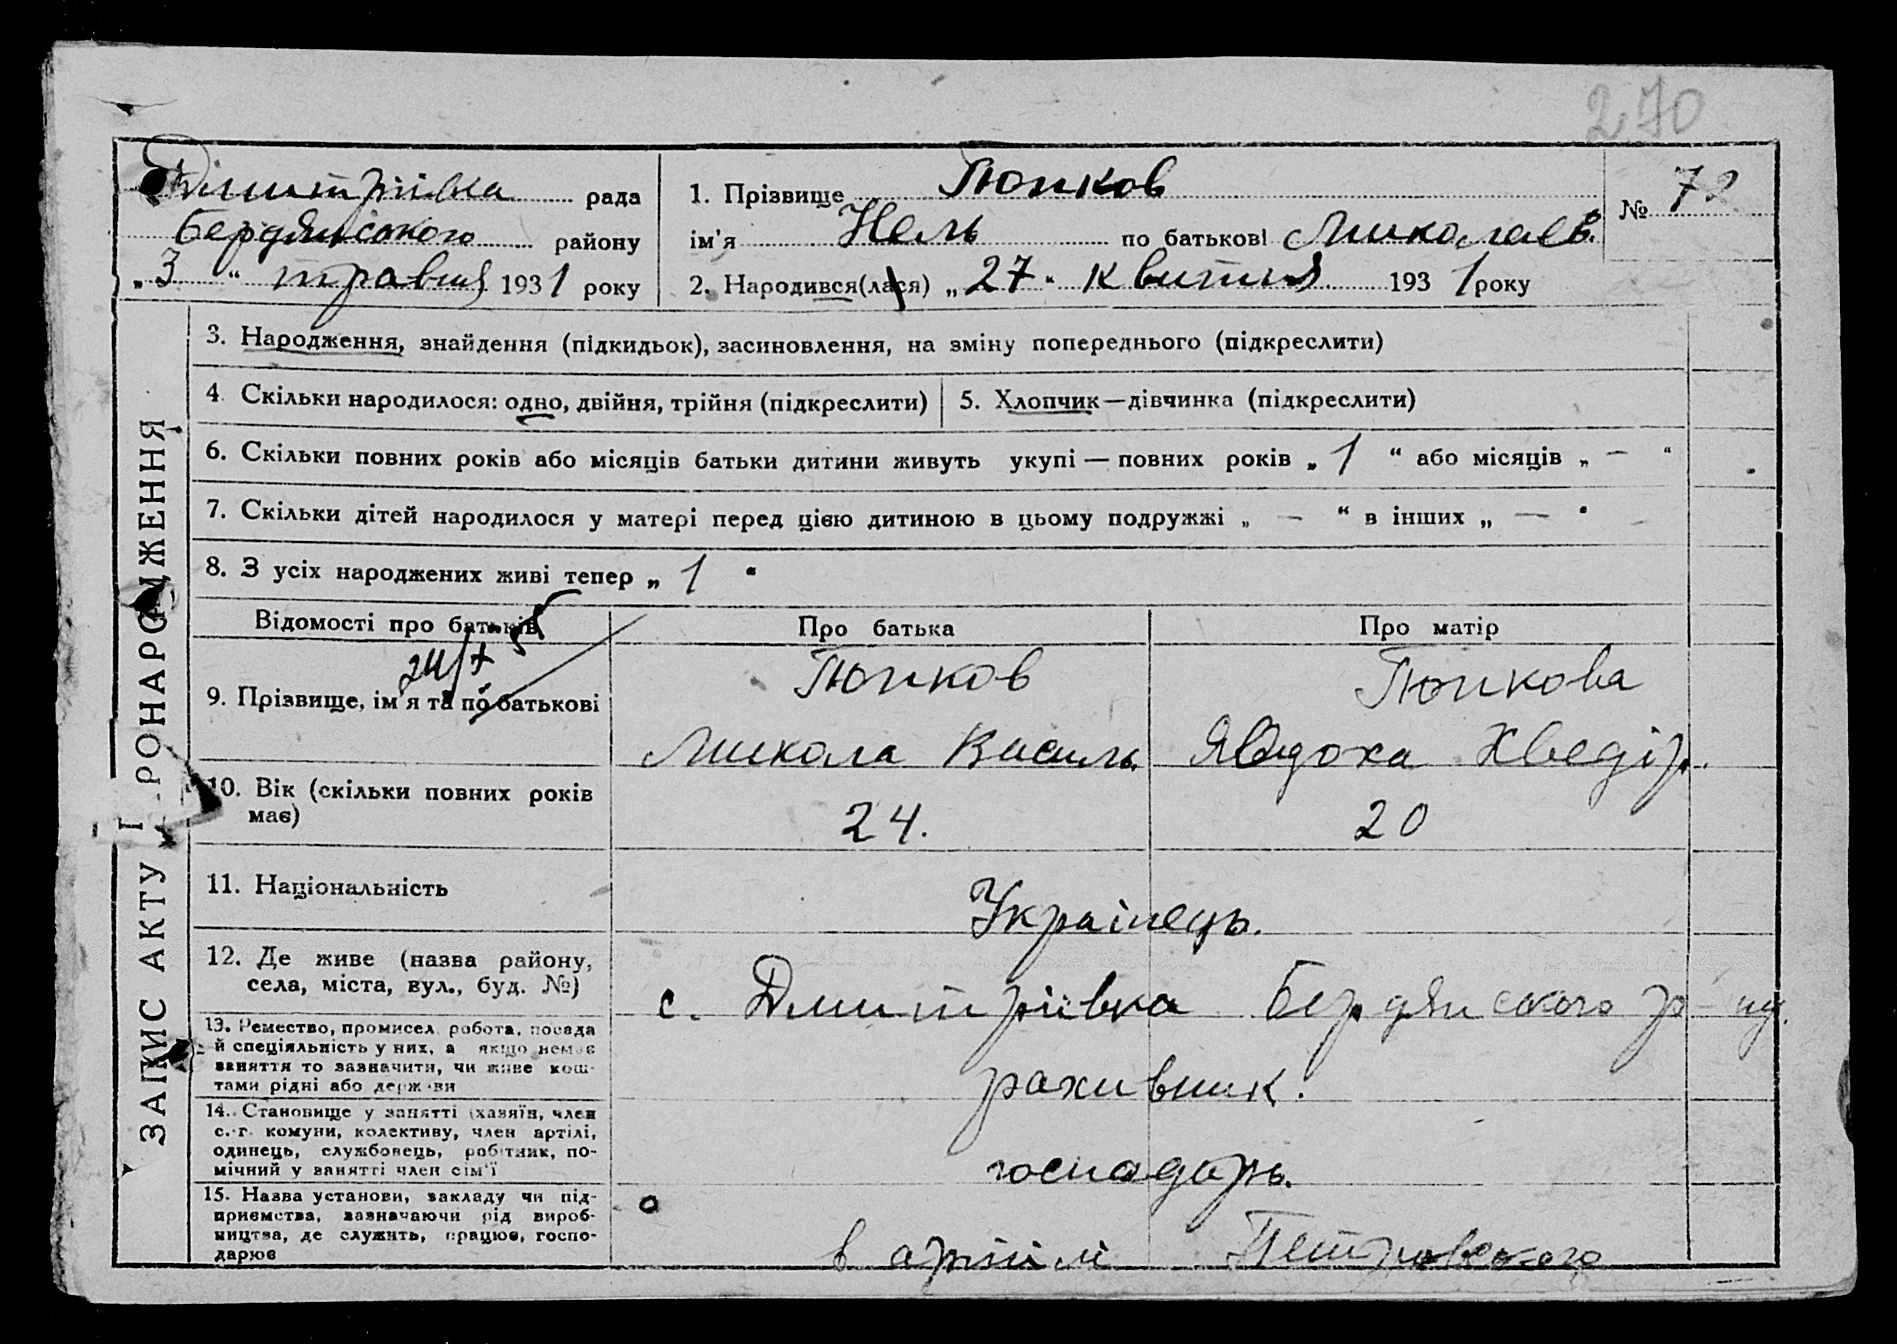 270
Дмитрівка рада
Бердянського району
„3“ травня 1931 року
1. Прізвище Тюпков
ім'я Нель по батькові Миколаєв.
2. Народився(лася) „27“ квітня 1931 року
№ 72
ЗАПИС АКТУ ПРО НАРОДЖЕННЯ
3. Народження, знайдення (підкидьок), засиновлення, на зміну попереднього (підкреслити)
4. Скільки народилося: одно, двійня, трійня (підкреслити)
5. Хлопчик—дівчинка (підкреслити)
6. Скільки повних років або місяців батьки дитини живуть укупі — повних років „ 1 “ або місяців „ — “
7. Скільки дітей народилося у матері перед цією дитиною в цьому подружжі „ — “ в інших „ — “
8. З усіх народжених живі тепер „ 1 “
Відомості про батьків
Про батька
Про матір
9. Прізвище, ім'я та по батькові
Тюпков
Тюпкова
Микола Василь.
Явдоха Хведір.
10. Вік (скільки повних років
має)
24.
20
11. Національність
Українець.
12. Де живе (назва району,
села, міста, вул., буд. №)
с. Дмитрівка Бердянського р-ну.
13. Ремество, промисел, робота, посада
й спеціяльність у них, а якщо немає
заняття то зазначити, чи живе кош-
тами рідні або держави
рахивник.
14. Становище у занятті (хазяїн, член
с.-г. комуни, колективу, член артілі,
одинець, службовець, робітник, по-
мічний у занятті член сім'ї
господарь.
15. Назва установи, закладу чи під-
приємства, зазначаючи рід вироб-
ництва, де служить, працює, госпо-
дарює
в артілі Петровского